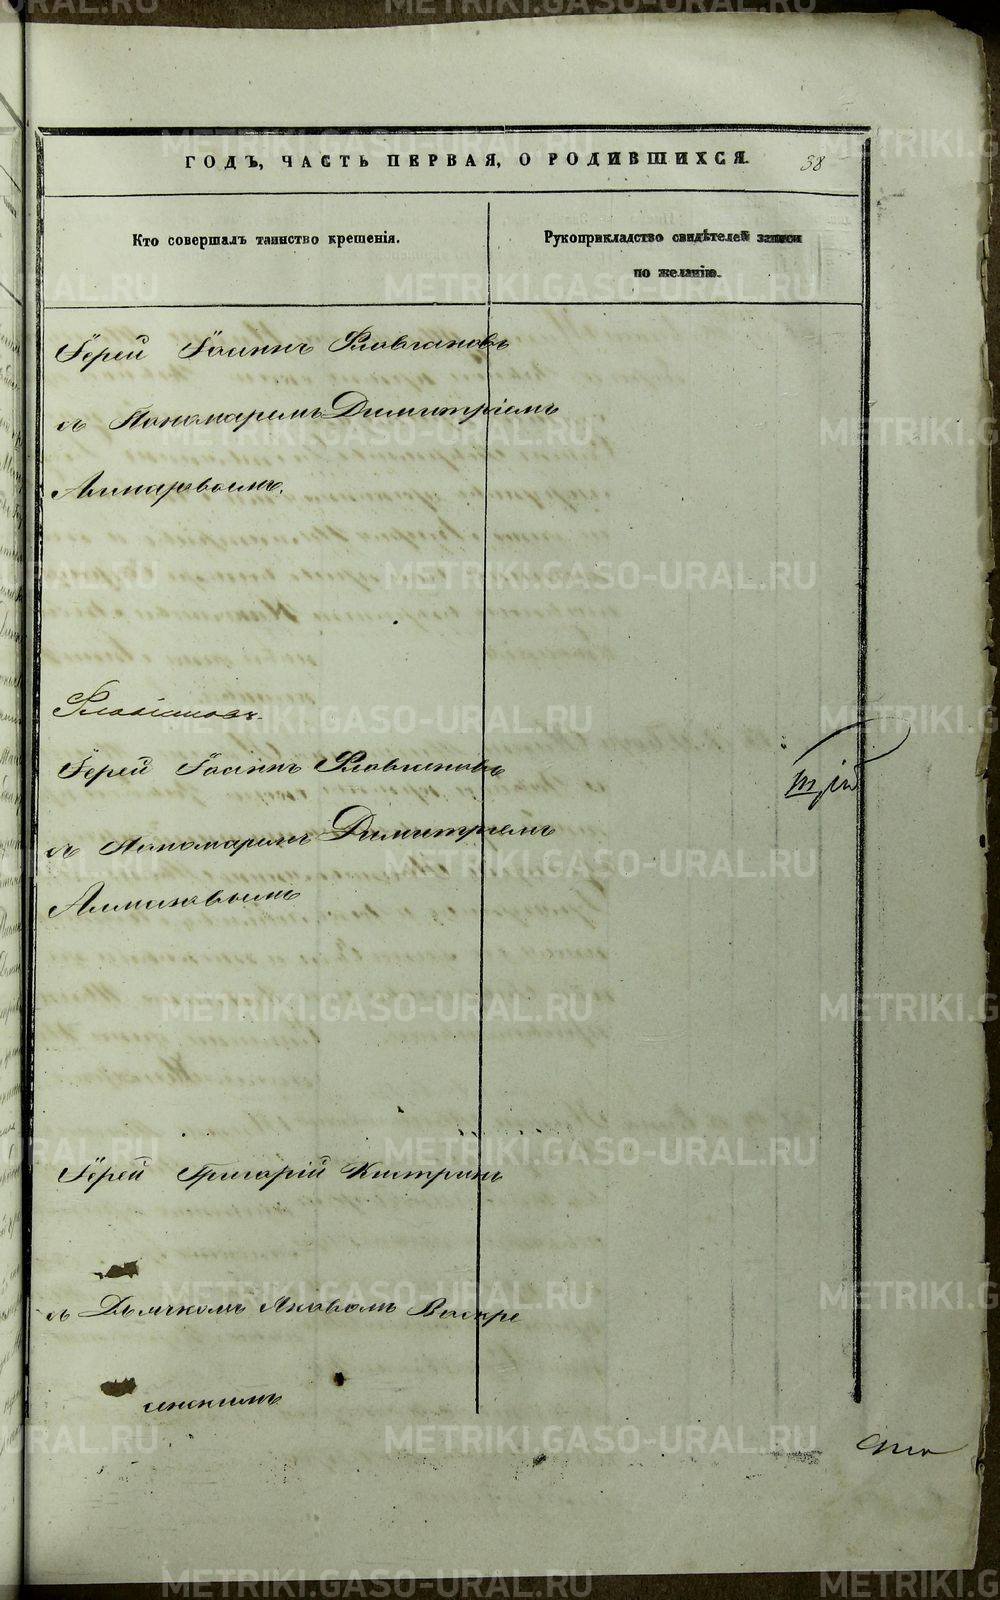 ГОДЪ, ЧАСТЬ ПЕРВАЯ, О РОДИВШИХСЯ.
38
Кто совершалъ таинство крещенія.
Рукоприкладство свидѣтелей записи
по желанію.
Іерей Іоаннъ Флавіановъ
съ Пономаремъ Димитріемъ
Флавіановъ.
Іерей Іоаннъ Флавіановъ
съ Пономаремъ Димитріемъ
Іерей Григорій Кистринъ
съ Дьячкомъ Яковомъ Воскре
сенскимъ
METRIKI.GASO-URAL.RU